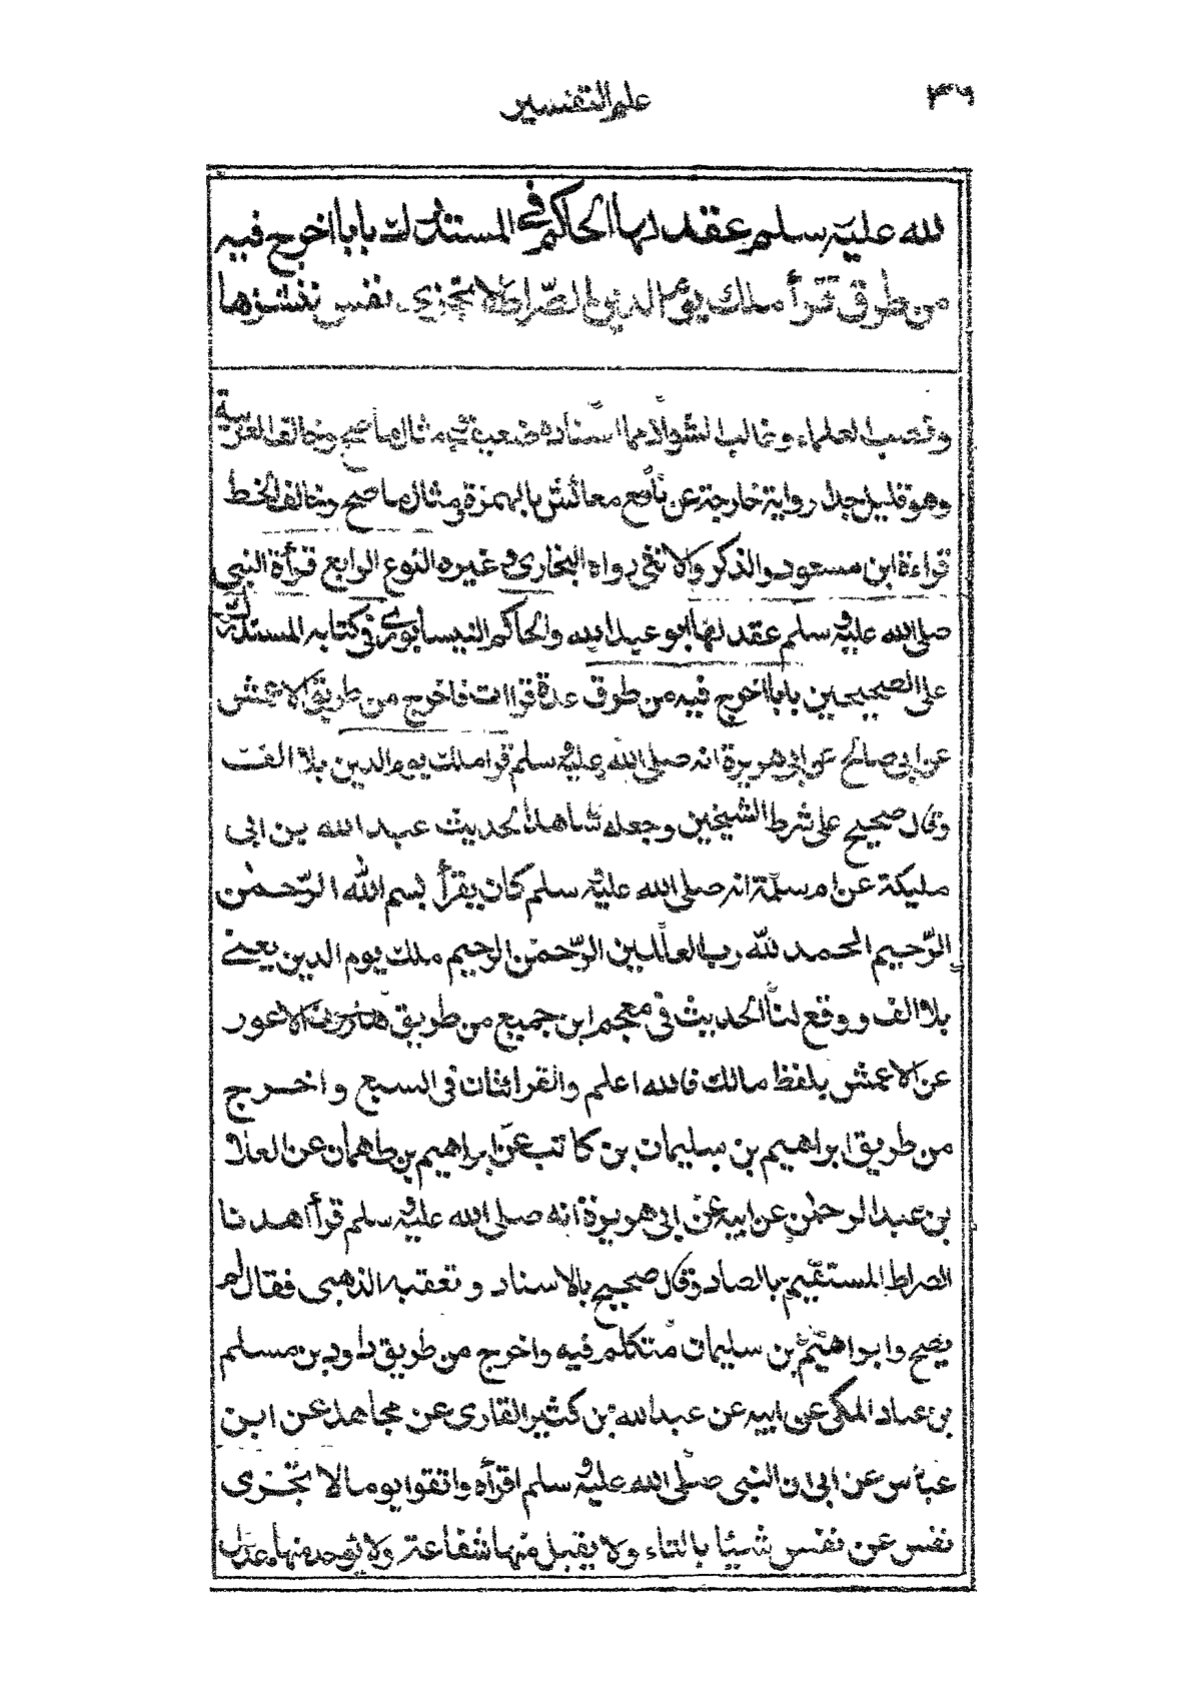 علم التفسير
٣٦
لله عليه وسلم عقد لها الحاكم في المستدرك بابا اخرج فيه
من طرق قرأ ملك يوم الدين الصراط لا تجزى نفس ننشزها
ونصب العلماء وغالب الشواذ مما اسناده ضعيف ومثال ما صح وخالف العربية
وهو قليل جدا رواية خارجة عن نافع معائش بالهمزة ومثال ما صح وخالف الخط
قراءة ابن مسعود والذكر والانثى رواه البخاري وغيره النوع الرابع قرأة النبي
صلى الله عليه وسلم عقد لها ابو عبد الله الحاكم النيسابوري في كتابه المستدرك
على الصحيحين بابا اخرج فيه من طرق عدة قراات فاخرج من طريق الاعمش
عن ابي صالح عن ابي هريرة انه صلى الله عليه وسلم قرا ملك يوم الدين بلا الف
وقال صحيح على شرط الشيخين وجعله شاهد الحديث عبد الله بن ابي
مليكة عن ام سلمة انه صلى الله عليه وسلم كان يقرأ بسم الله الرّحمٰن
الرّحيم الحمد للّه رب العالمين الرّحمٰن الرحيم ملك يوم الدين يعني
بلا الف ووقع لنا الحديث في معجم ابن جميع من طريق هارون الاعور
عن الاعمش بلفظ مالك فالله اعلم والقرائتان في السبع واخرج
من طريق ابراهيم بن سليمان بن كاتب عن ابراهيم بن طهمان عن العلا
بن عبد الرحمٰن عن ابيه عن ابي هريرة انه صلى الله عليه وسلم قرأ اهدنا
الصراط المستقيم بالصاد وقال صحيح بالاسناد وتعقبه الذهبي فقال لم
يصح وابراهيم بن سليمان متكلم فيه واخرج من طريق داود بن مسلم
بن عباد المكي عن ابيه عن عبد الله بن كثير القاري عن مجاهد عن ابن
عباس عن ابي ان النبي صلى الله عليه وسلم اقرأه واتقوا يوما لا تجزى
نفس عن نفس شيئا بالتاء ولا يقبل منها شفاعة ولا يؤخذ منها عدل